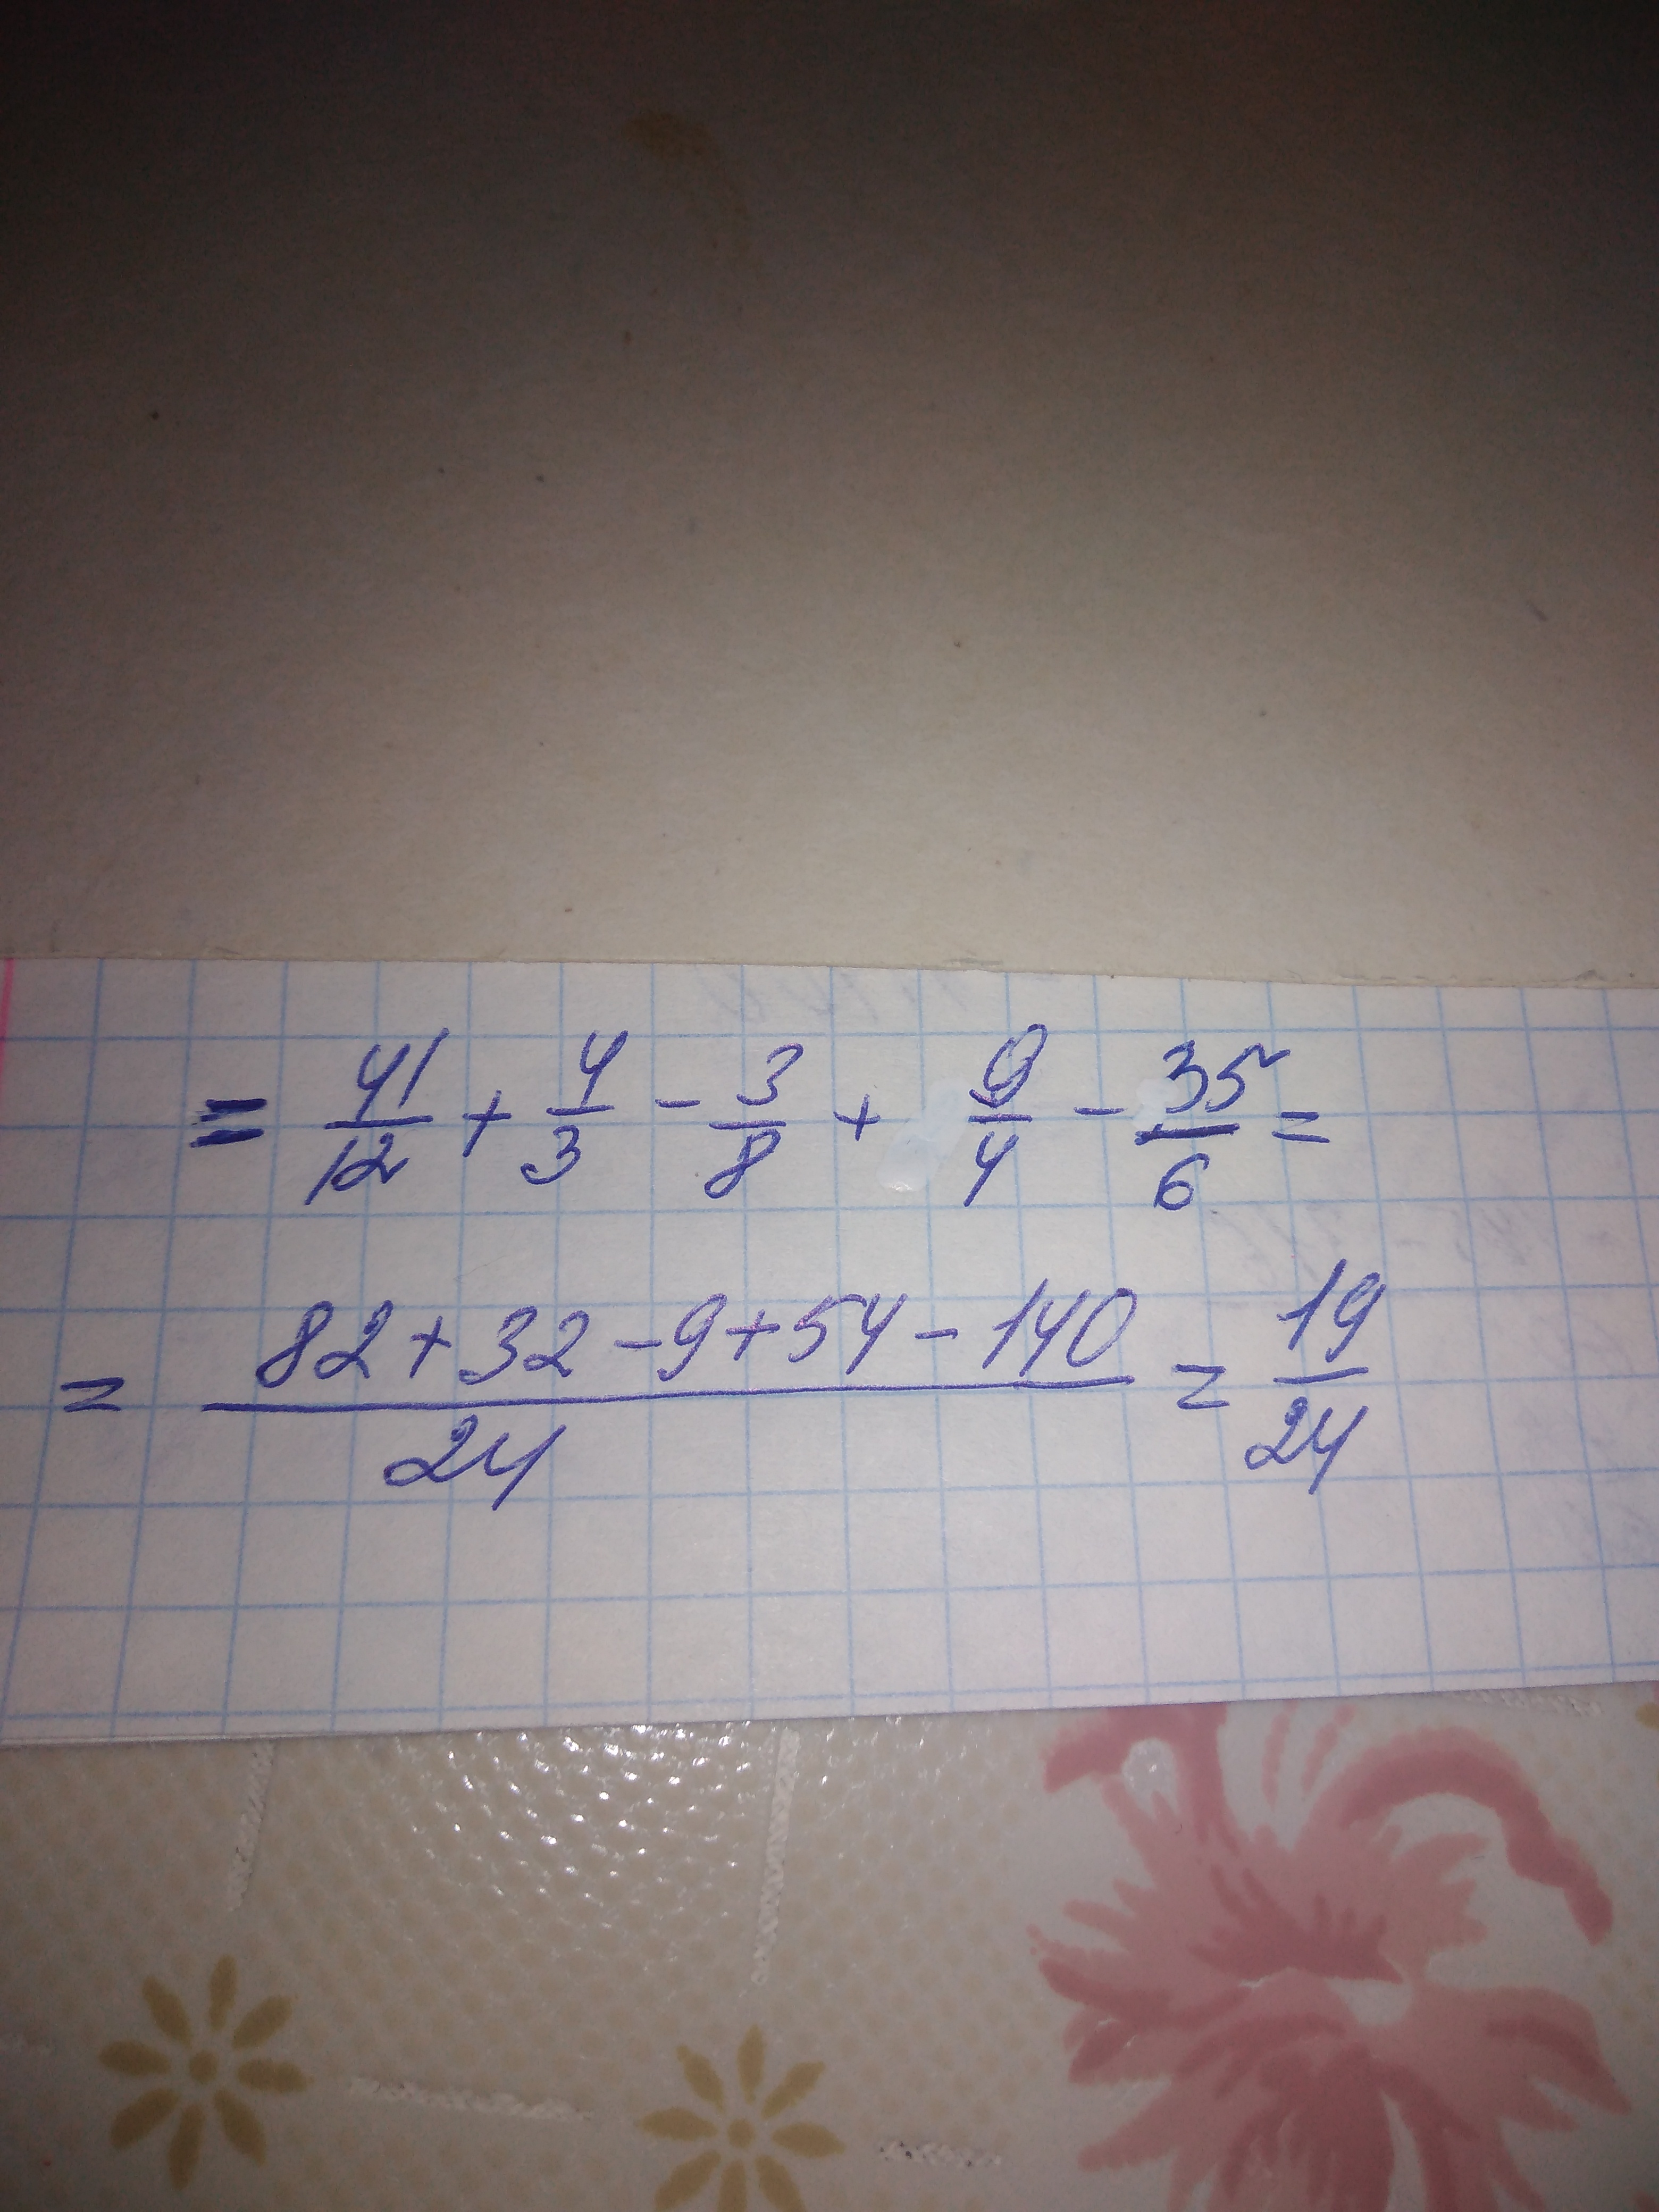 = 41/12 + 4/3 - 3/8 + 9/4 - 35/6 =
= (82 + 32 - 9 + 54 - 140)/24 = 19/24